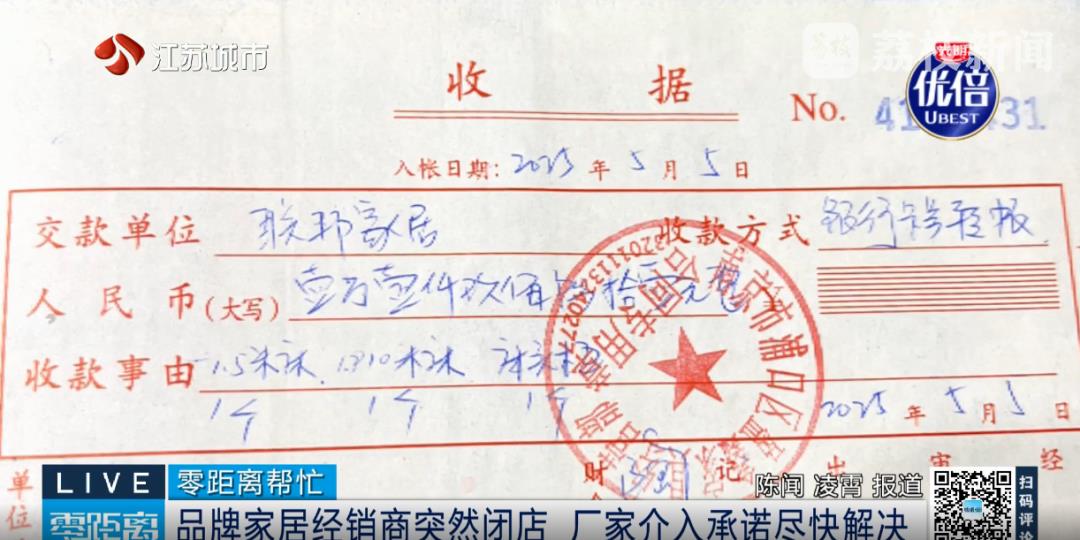 江苏城市
荔枝
荔枝新闻
光明
优倍
UBEST
收 据
No. 41 31
入帐日期：2025年5月5日
交款单位 联邦家居 收款方式 银行
人民币(大写) 壹万壹仟玖佰 拾 元
收款事由 1.5米床、1810米床 床头柜
1个 1个 1个
2025年5月5日
南京市浦口区
合同专用章
财 记 出 审 经
单位
LIVE 零距离帮忙
陈闻 凌霄 报道
零距离 品牌家居经销商突然闭店 厂家介入承诺尽快解决
扫码评论